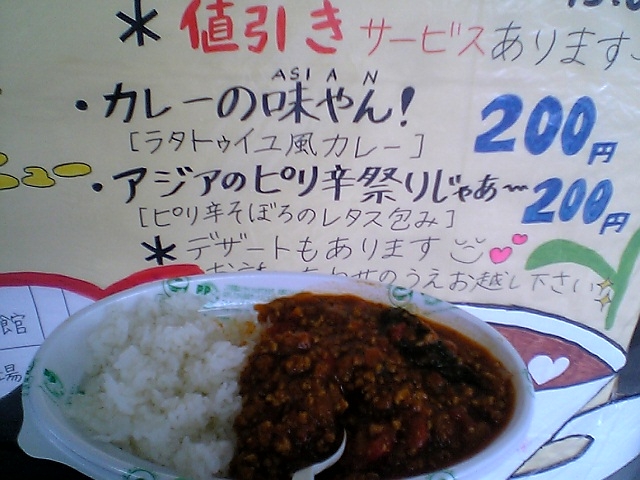 * 値引きサービスあります
ASIAN
・カレーの味やん! 200円
[ラタトゥイユ風カレー]
ュー
・アジアのピリ辛祭りじゃあ〜 200円
[ピリ辛そぼろのレタス包み]
* デザートもあります
のうえお越し下さい
館
場